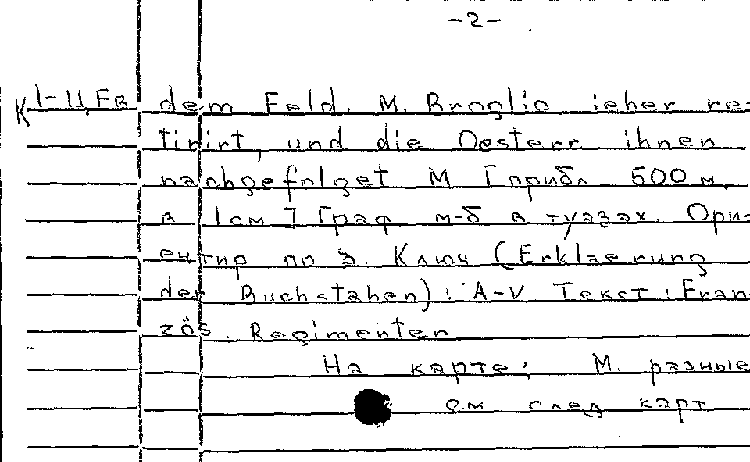 -2-
dem Feld. M. Broglio ieher re-
tirirt, und die Oesterr ihnen
nachgefolget М [прибл 500 м.
в 1см] Граф м-б в туазах. Ори-
ентир по З. Ключ (Erklaerung
der Buchstaben): A-V Текст: Fran-
zös. Regimenter
На карте: М. разные
см след карт